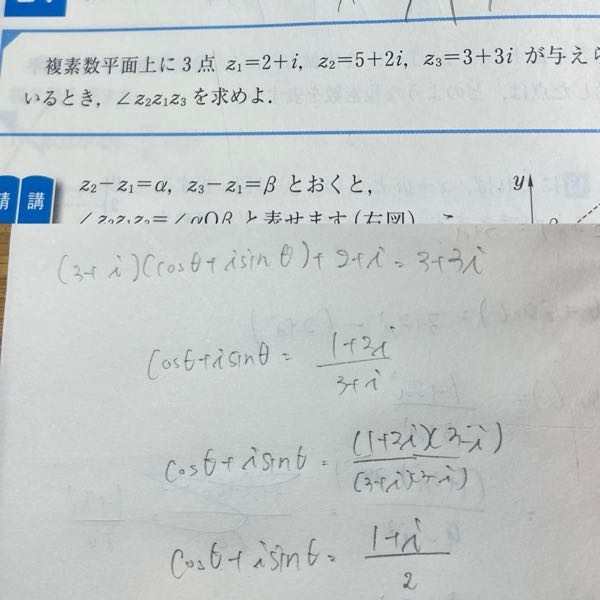 複素数平面上に3点 z₁=2+i, z₂=5+2i, z₃=3+3i が与えら
いるとき, ∠z₂z₁z₃ を求めよ.
精講
z₂−z₁=α, z₃−z₁=β とおくと,
y
∠z₂z₁z₃=∠αOβ と表せます(右図)
(3+i)(cosθ+isinθ)+2+i=3+3i
cosθ+isinθ = (1+2i)/(3+i)
cosθ+isinθ = (1+2i)(3-i)/(3+i)(3-i)
cosθ+isinθ = (1+i)/2